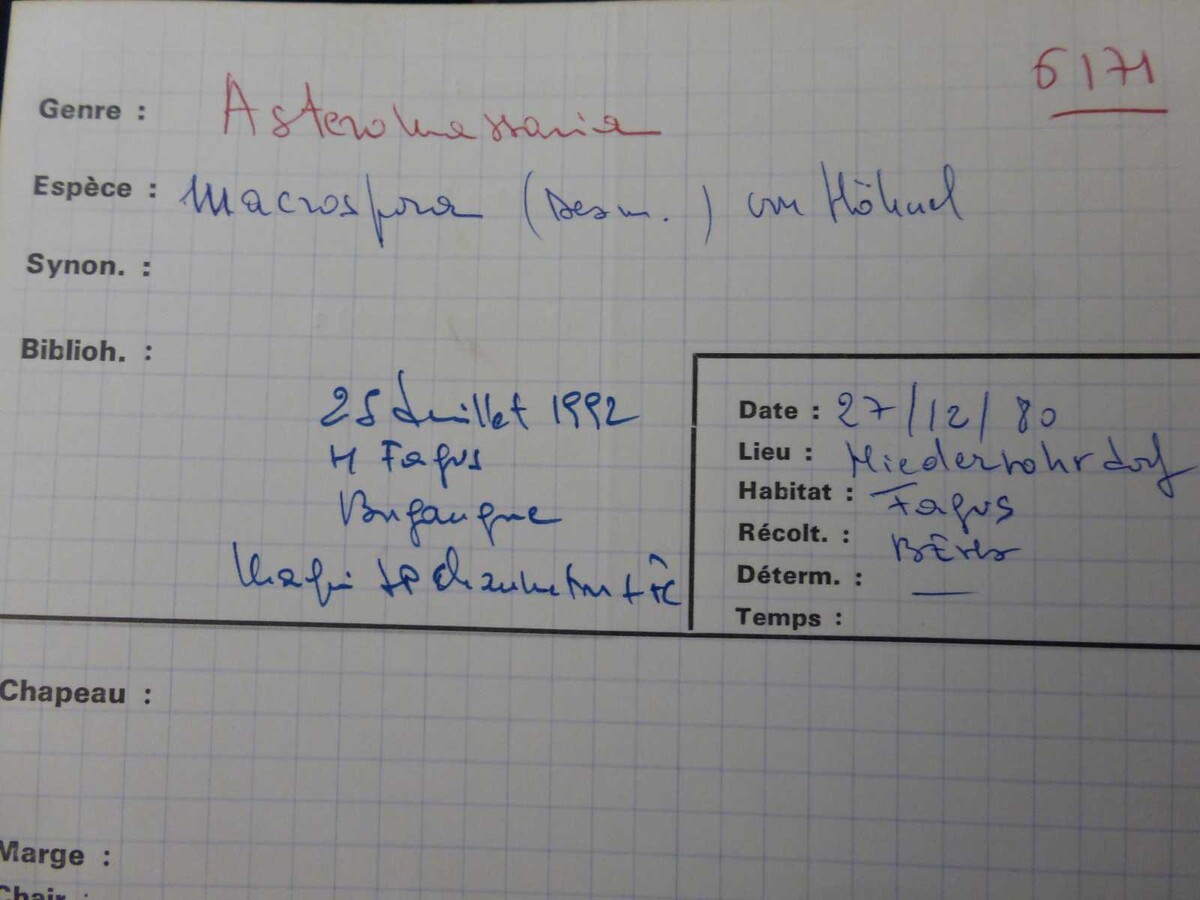 6171
Genre : Asteromassaria
Espèce : macrospora (Desm.) von Höhnel
Synon. :
Biblioh. :
25 Juillet 1992
Fagus
Date : 27/12/80
Lieu : Niederrohrdorf
Habitat : Fagus
Récolt. :
Déterm. : —
Temps :
Chapeau :
Marge :
Chair :